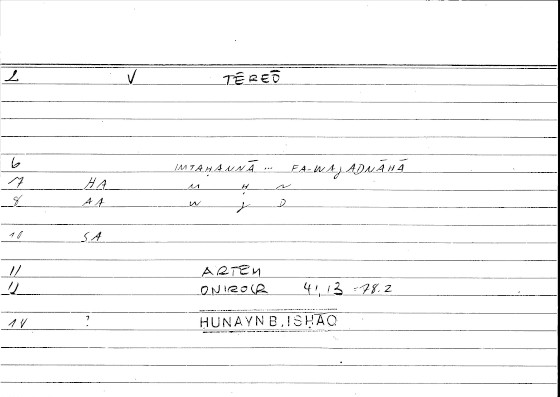 2 V TĒREŌ
6 IMTAḤANNĀ ... FA-WAJADNĀHĀ
7 HA M Ḥ N
8 AA W J D
10 SA
11 ARTEM
12 ONIROCR 41,13 -78.2
14 ? HUNAYN B. ISḤĀQ